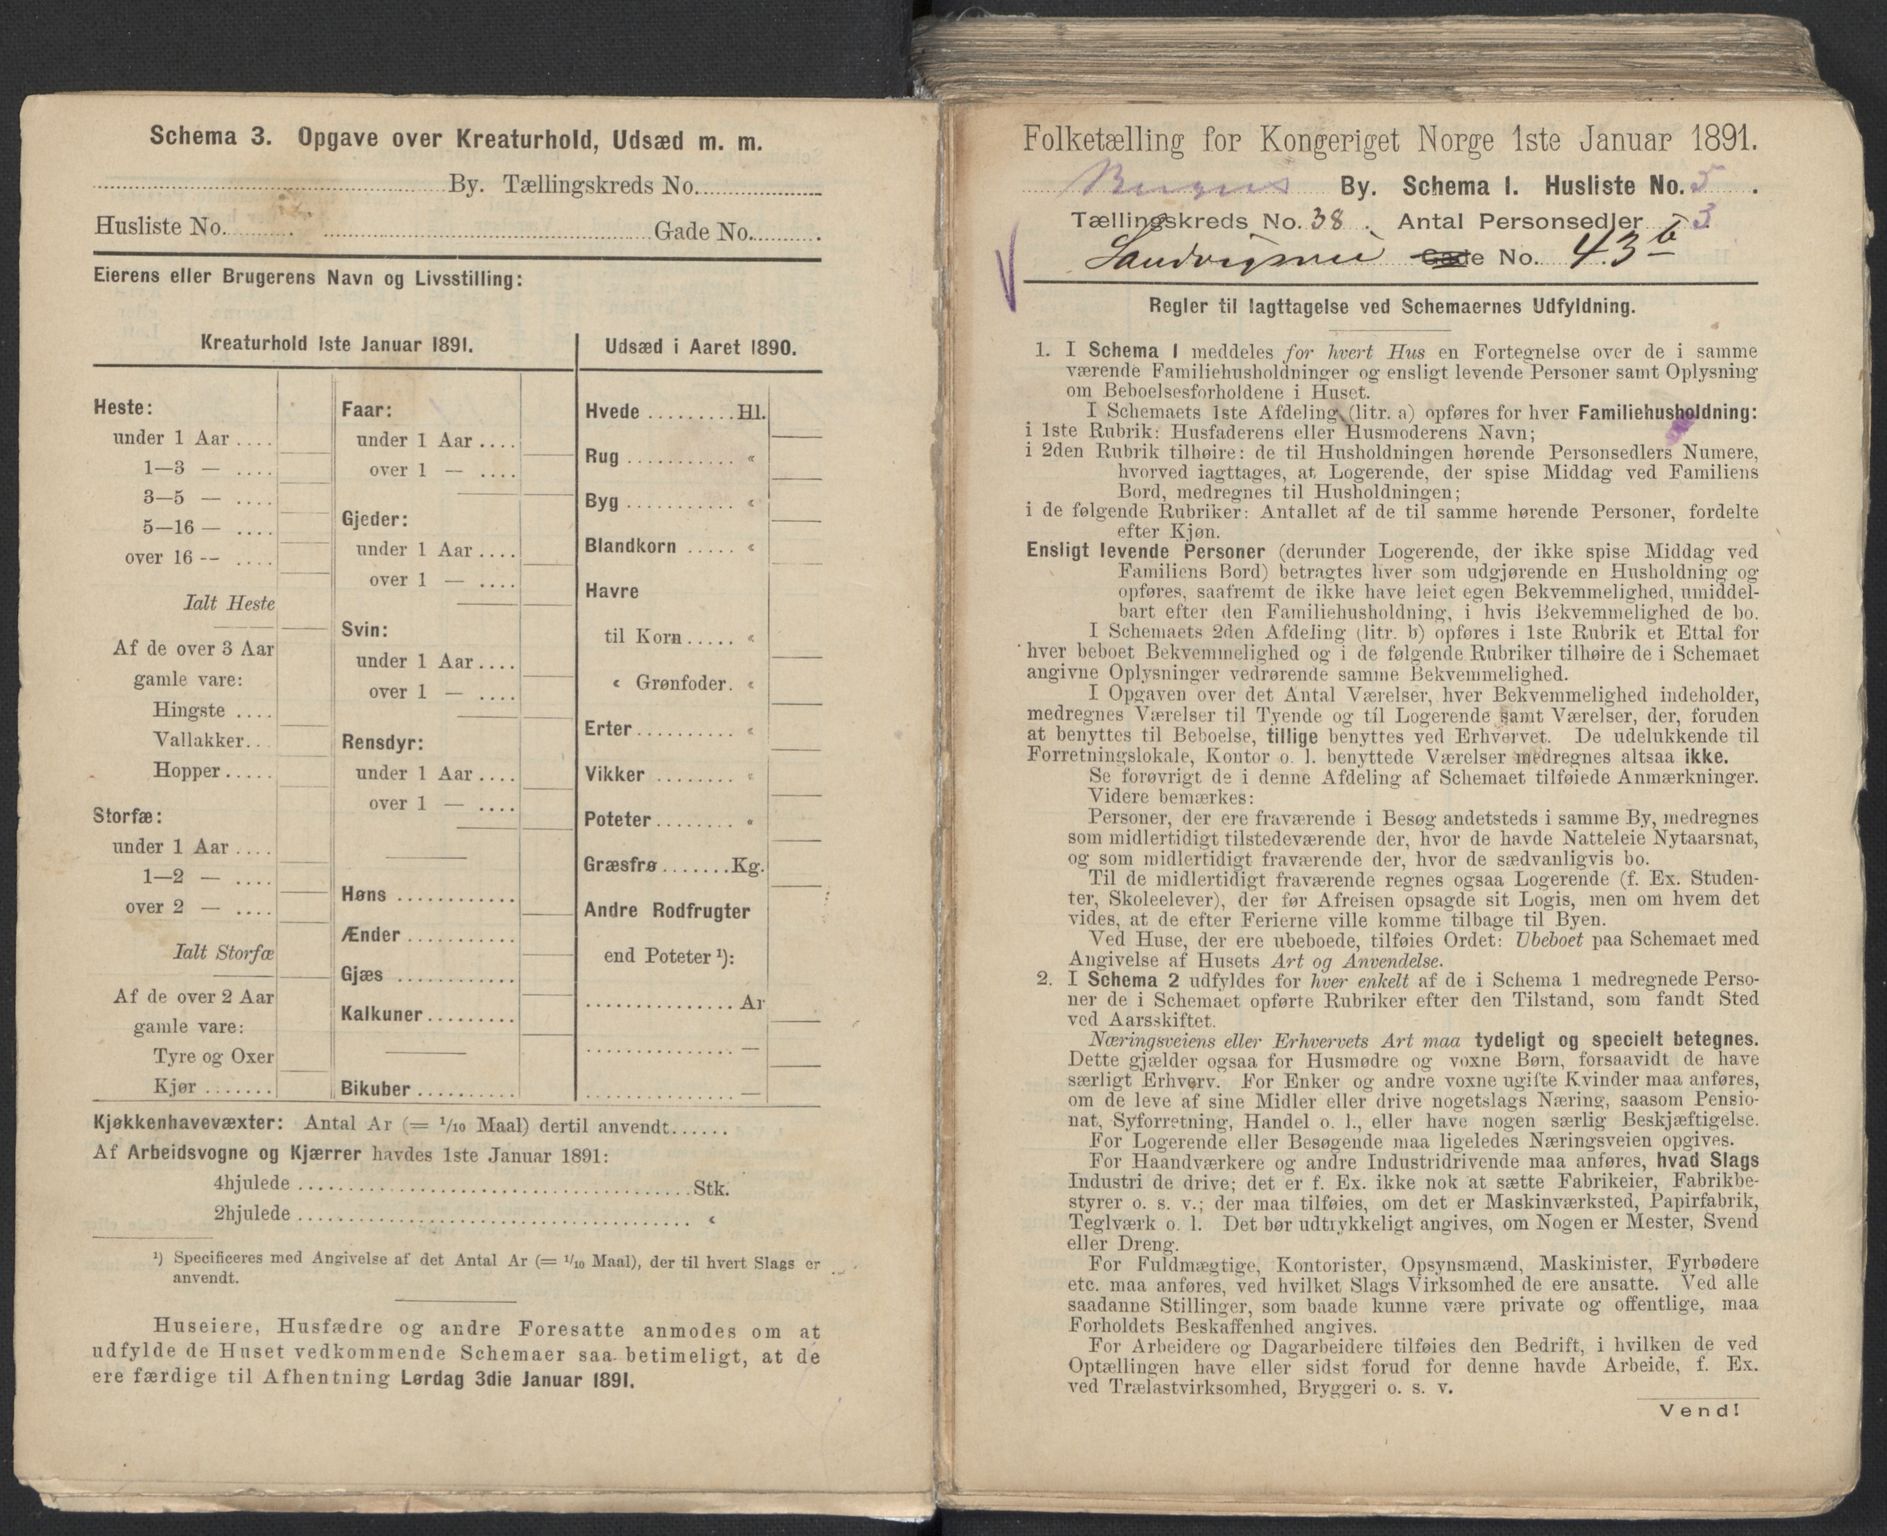 Schema 3. Opgave over Kreaturhold, Udsæd m. m.
By. Tællingskreds No.
Husliste No. Gade No.
Eierens eller Brugerens Navn og Livsstilling:
Kreaturhold 1ste Januar 1891.
Heste:
under 1 Aar ....
1—3 — ....
3—5 — ....
5—16 — ....
over 16 -- ....
Ialt Heste
Af de over 3 Aar
gamle vare:
Hingste ....
Vallakker...
Hopper.....
Storfæ:
under 1 Aar ....
1—2 — ....
over 2 — ....
Ialt Storfæ
Af de over 2 Aar
gamle vare:
Tyre og Oxer
Kjør .......
Faar:
under 1 Aar ....
over 1 — ....
Gjeder:
under 1 Aar ....
over 1 — ....
Svin:
under 1 Aar ....
over 1 — ....
Rensdyr:
under 1 Aar ....
over 1 — ....
Høns ............
Ænder ...........
Gjæs ............
Kalkuner.........
Bikuber ..........
Udsæd i Aaret 1890.
Hvede .........Hl.
Rug ........... «
Byg ........... «
Blandkorn ..... «
Havre
til Korn..... «
« Grønfoder. «
Erter.......... «
Vikker ........ «
Poteter........ «
Græsfrø.......Kg.
Andre Rodfrugter
end Poteter ¹):
...............Ar
............... —
............... —
Kjøkkenhavevæxter: Antal Ar (= 1/10 Maal) dertil anvendt......
Af Arbeidsvogne og Kjærrer havdes 1ste Januar 1891:
4hjulede ........................................Stk.
2hjulede ........................................ «
¹) Specificeres med Angivelse af det Antal Ar (= 1/10 Maal), der til hvert Slags er
anvendt.
Huseiere, Husfædre og andre Foresatte anmodes om at
udfylde de Huset vedkommende Schemaer saa betimeligt, at de
ere færdige til Afhentning Lørdag 3die Januar 1891.
Folketælling for Kongeriget Norge 1ste Januar 1891.
Bergens By. Schema 1. Husliste No. 5.
Tællingskreds No. 38. Antal Personsedler 3
Sandvigsvei Gade No. 43 b
Regler til Iagttagelse ved Schemaernes Udfyldning.
1. I Schema 1 meddeles for hvert Hus en Fortegnelse over de i samme
værende Familiehusholdninger og ensligt levende Personer samt Oplysning
om Beboelsesforholdene i Huset.
I Schemaets 1ste Afdeling (litr. a) opføres for hver Familiehusholdning:
i 1ste Rubrik: Husfaderens eller Husmoderens Navn;
i 2den Rubrik tilhøire: de til Husholdningen hørende Personsedlers Numere,
hvorved iagttages, at Logerende, der spise Middag ved Familiens
Bord, medregnes til Husholdningen;
i de følgende Rubriker: Antallet af de til samme hørende Personer, fordelte
efter Kjøn.
Ensligt levende Personer (derunder Logerende, der ikke spise Middag ved
Familiens Bord) betragtes hver som udgjørende en Husholdning og
opføres, saafremt de ikke have leiet egen Bekvemmelighed, umiddel-
bart efter den Familiehusholdning, i hvis Bekvemmelighed de bo.
I Schemaets 2den Afdeling (litr. b) opføres i 1ste Rubrik et Ettal for
hver beboet Bekvemmelighed og i de følgende Rubriker tilhøire de i Schemaet
angivne Oplysninger vedrørende samme Bekvemmelighed.
I Opgaven over det Antal Værelser, hver Bekvemmelighed indeholder,
medregnes Værelser til Tyende og til Logerende samt Værelser, der, foruden
at benyttes til Beboelse, tillige benyttes ved Erhvervet. De udelukkende til
Forretningslokale, Kontor o. l. benyttede Værelser medregnes altsaa ikke.
Se forøvrigt de i denne Afdeling af Schemaet tilføiede Anmærkninger.
Videre bemærkes:
Personer, der ere fraværende i Besøg andetsteds i samme By, medregnes
som midlertidigt tilstedeværende der, hvor de havde Natteleie Nytaarsnat,
og som midlertidigt fraværende der, hvor de sædvanligvis bo.
Til de midlertidigt fraværende regnes ogsaa Logerende (f. Ex. Studen-
ter, Skoleelever), der før Afreisen opsagde sit Logis, men om hvem det
vides, at de efter Ferierne ville komme tilbage til Byen.
Ved Huse, der ere ubeboede, tilføies Ordet: Ubeboet paa Schemaet med
Angivelse af Husets Art og Anvendelse.
2. I Schema 2 udfyldes for hver enkelt af de i Schema 1 medregnede Perso-
ner de i Schemaet opførte Rubriker efter den Tilstand, som fandt Sted
ved Aarsskiftet.
Næringsveiens eller Erhvervets Art maa tydeligt og specielt betegnes.
Dette gjælder ogsaa for Husmødre og voxne Børn, forsaavidt de have
særligt Erhverv. For Enker og andre voxne ugifte Kvinder maa anføres,
om de leve af sine Midler eller drive nogetslags Næring, saasom Pensio-
nat, Syforretning, Handel o. l., eller have nogen særlig Beskjæftigelse.
For Logerende eller Besøgende maa ligeledes Næringsveien opgives.
For Haandværkere og andre Industridrivende maa anføres, hvad Slags
Industri de drive; det er f. Ex. ikke nok at sætte Fabrikeier, Fabrikbe-
styrer o. s. v.; der maa tilføies, om det er Maskinværksted, Papirfabrik,
Teglværk o. l. Det bør udtrykkeligt angives, om Nogen er Mester, Svend
eller Dreng.
For Fuldmægtige, Kontorister, Opsynsmænd, Maskinister, Fyrbødere
etc. maa anføres, ved hvilket Slags Virksomhed de ere ansatte. Ved alle
saadanne Stillinger, som baade kunne være private og offentlige, maa
Forholdets Beskaffenhed angives.
For Arbeidere og Dagarbeidere tilføies den Bedrift, i hvilken de ved
Optællingen have eller sidst forud for denne havde Arbeide, f. Ex.
ved Trælastvirksomhed, Bryggeri o. s. v.
Vend!